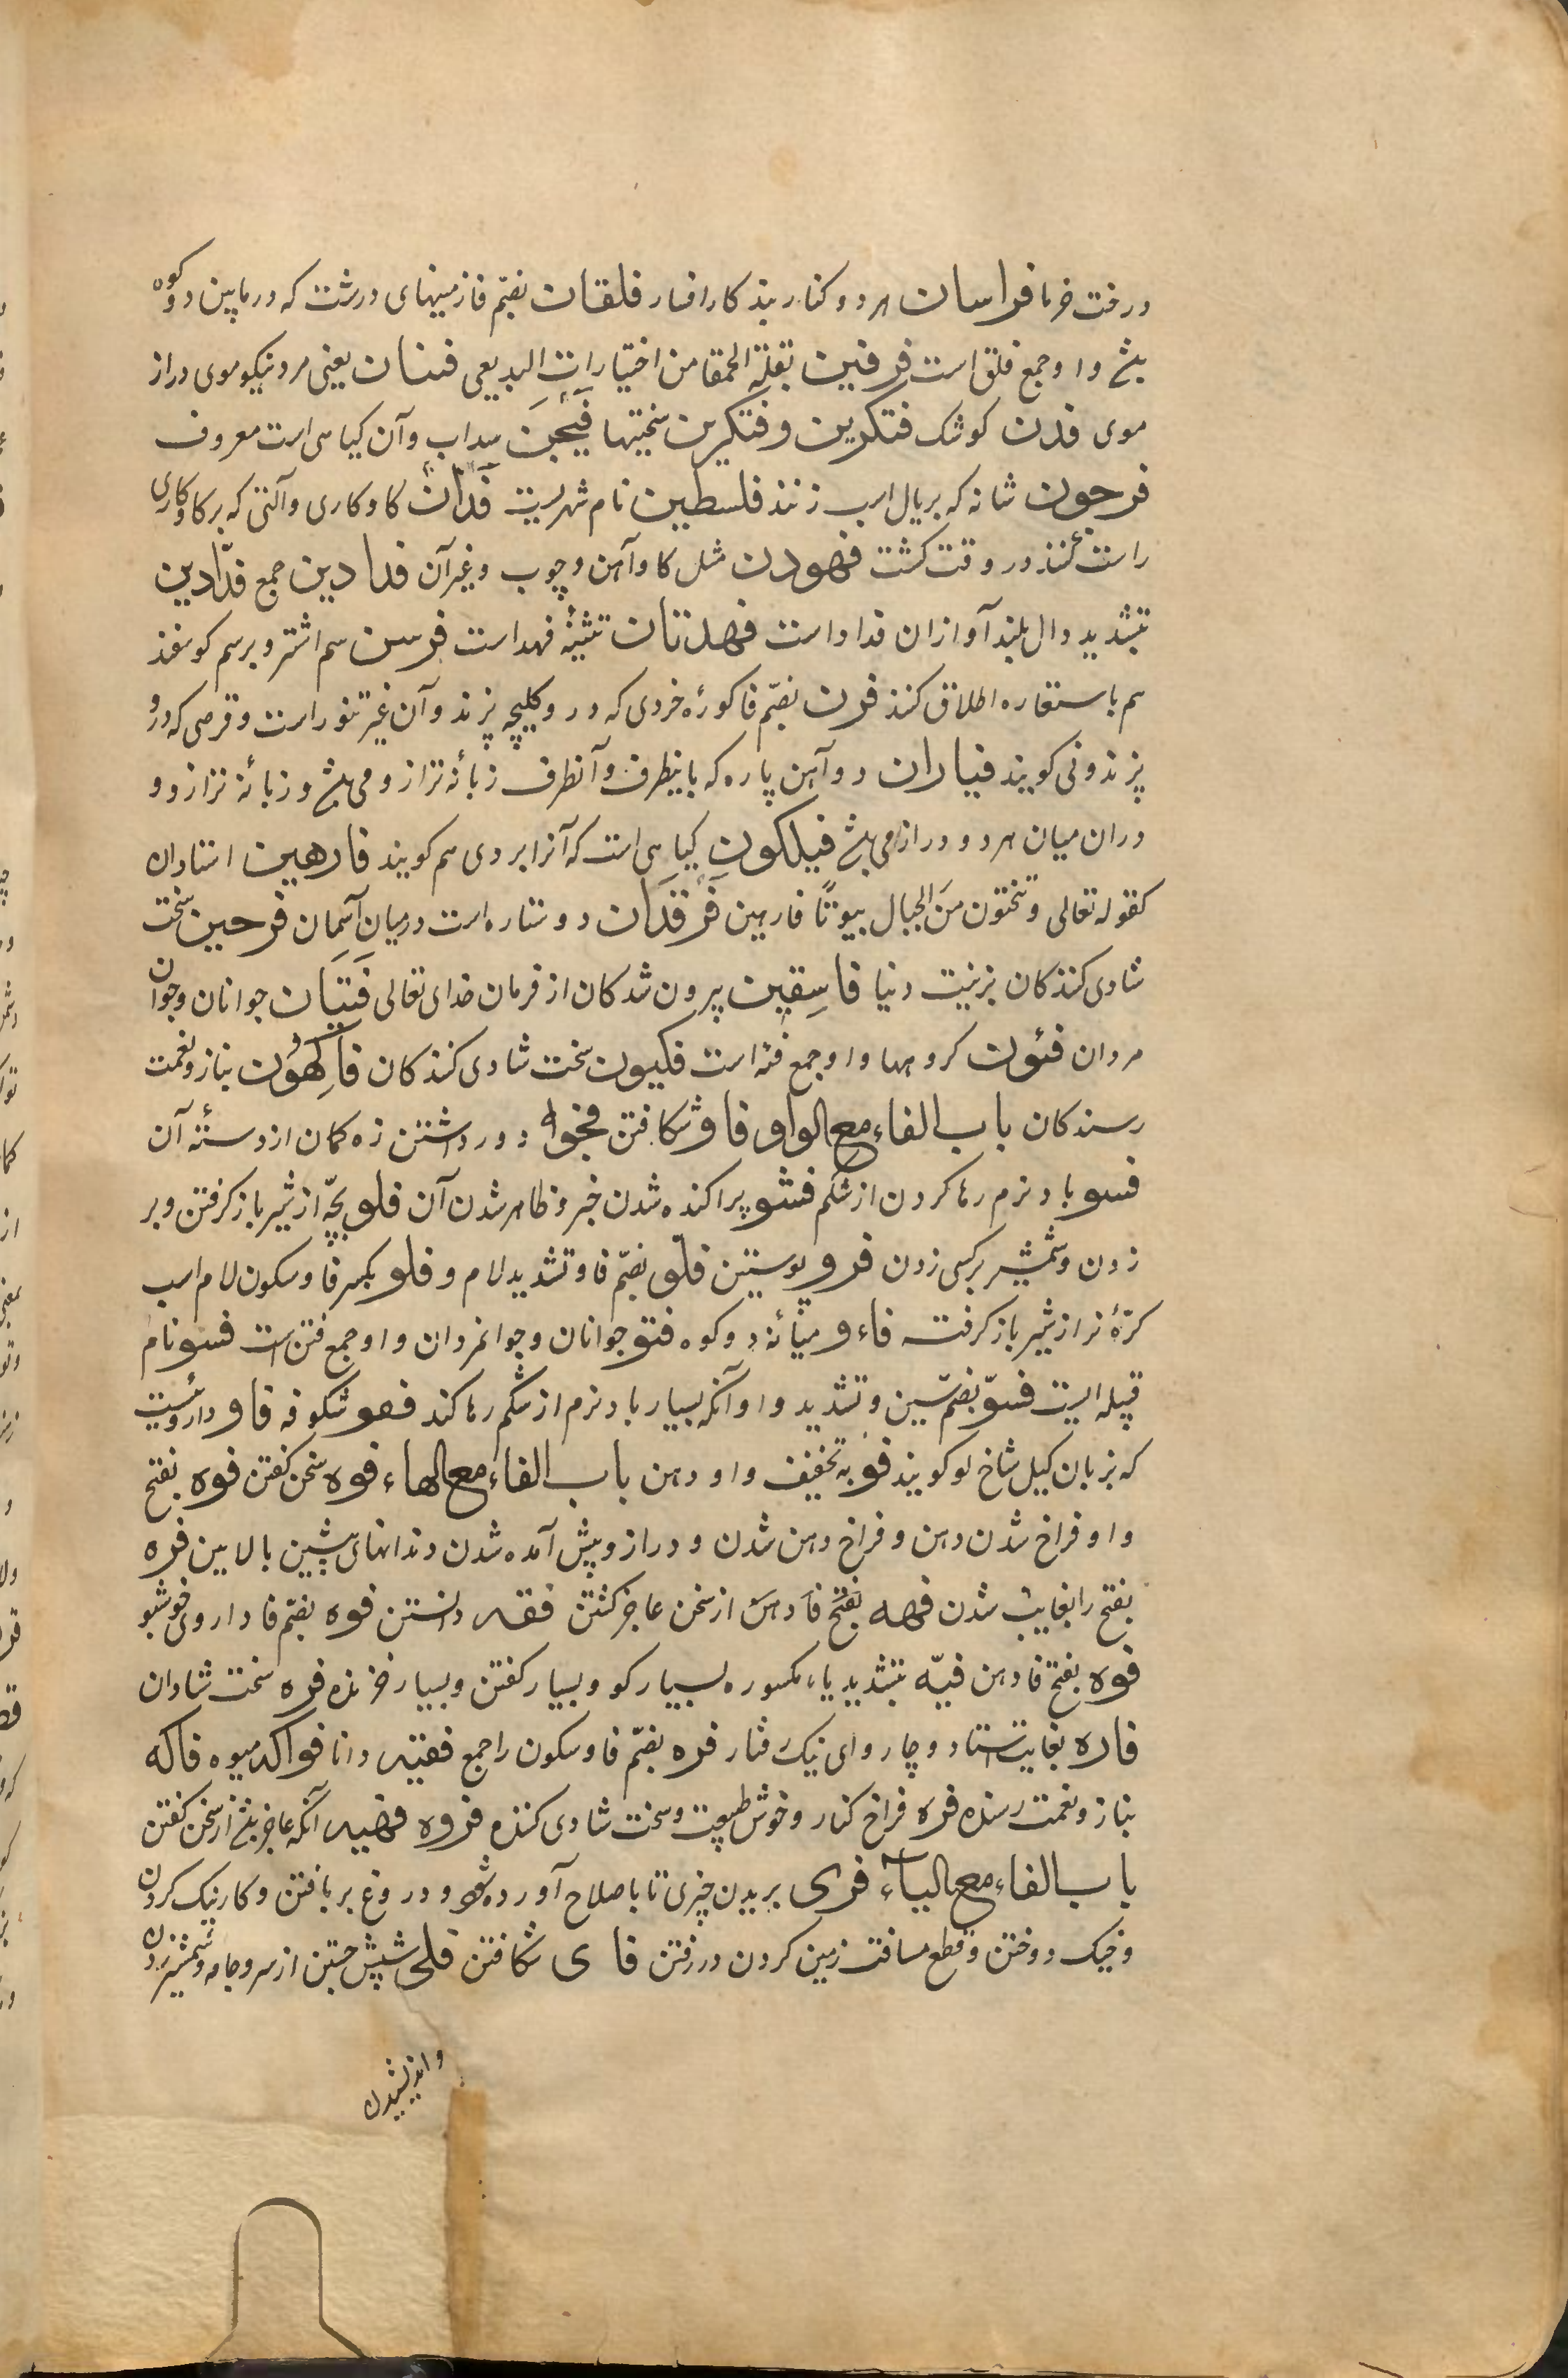 درخت خرما فراسان هر دو کنار بند کار افسار فلقان بضمّ فا زمینهای درشت که در مابین دو کوه
بشد و او جمع فلق است فرفین بقلة الحمقا من اختیارات البدیعی فنان یعنی مرد نیکو موی دراز
موی فدن کوشک فتکرین و فتکرین سختیها فیجن سداب و آن کیاهی است معروف
فرجون شانه که بر یال اسب زنند فلسطین نام شهریست فدان کاو کاری و آلتی که بر کاو کاری
راست کنند در وقت کشت فهودن مثل کاو آهن و چوب و غیر آن فدادین جمع فدّادین
بتشدید دال بلند آوازان فداد است فهدتان تثنیهٔ فهد است فرسن سم اشتر و بر سم کوسفند
هم باستعاره اطلاق کنند فرن بضمّ فا کورهٔ خردی که در و کلیچه پزند و آن غیر تنور است و قرصی که درو
پزند فرنی کویند فیاران دو آهن پاره که باینطرف و آنطرف زبانهٔ ترازو می باشد و زبانهٔ ترازو و
در ان میان هر دو دراز می باشد فیلکون کیاهی است که آنرا بردی هم کویند فارهین استادان
کقوله تعالی وتنحتون من الجبال بیوتًا فارهین فرقدان دو ستاره است در میان آسمان فرحین سخت
شادی کنندکان بزینت دنیا فاسقین بیرون شدکان از فرمان خدای تعالی فتیان جوانان و جوان
مردان فئون کروهها و او جمع فئه است فکیون سخت شادی کنندکان فاکهون بناز و نعمت
رسندکان باب الفاء مع الواو فاو شکافتن فجو دور داشتن زه کمان از دستهٔ آن
فسو باد نرم رها کردن از شکم فشو پراکنده شدن خبر و ظاهر شدن آن فلو بچّه از شیر باز کرفتن و بر
زدن و شمشیر بر کسی زدن فرو پوستین فلوّ بضمّ فا و تشدید لام و فلو بکسر فا و سکون لام اسب
کرّهٔ نر از شیر باز کرفته فاءو میانهٔ دو کوه فتو جوانان و جوانمردان و او جمع فتن است فسو نام
قبیله ایست فسوّ بضمّ سین و تشدید واو آنکه بسیار باد نرم از شکم رها کند فغو شکوفه فاو داروئیست
که بزبان کیل شاخ لو کویند فو به تخفیف واو دهن باب الفاء مع الهاء فوه سخن کفتن فوه بفتح
واو فراخ شدن دهن و فراخ دهن شدن و دراز و پیش آمده شدن دندانهای پیشین بالایین فره
بفتح را بغایت شدن فهه بفتح فا و هی از سخن عاجز کشتن فقه دانستن فوه بضمّ فا داروی خوشبو
فوه بفتح فا دهن فیّه بتشدید یاء مکسوره بسیار کو و بسیار کفتن و بسیار خورنده فره سخت شادان
فاره بغایت استاد و چاروای نیک رفتار فره بضمّ فا و سکون را جمع فقیه دانا فواکه میوه فاکه
بناز و نعمت رسنده فره فراخ کنار و خوش طبیعت و سخت شادی کننده فروه فهیه آنکه عاجز باشد از سخن کفتن
باب الفاء مع الیاء فری بریدن چیزی تا باصلاح آورده شود و دروغ بر بافتن و کار نیک کردن
و خیک دوختن و قطع مسافت زمین کردن در رفتن فای شکافتن فلی شپش جستن از سر و جامه و شمشیر زدن
و اندیشیدن